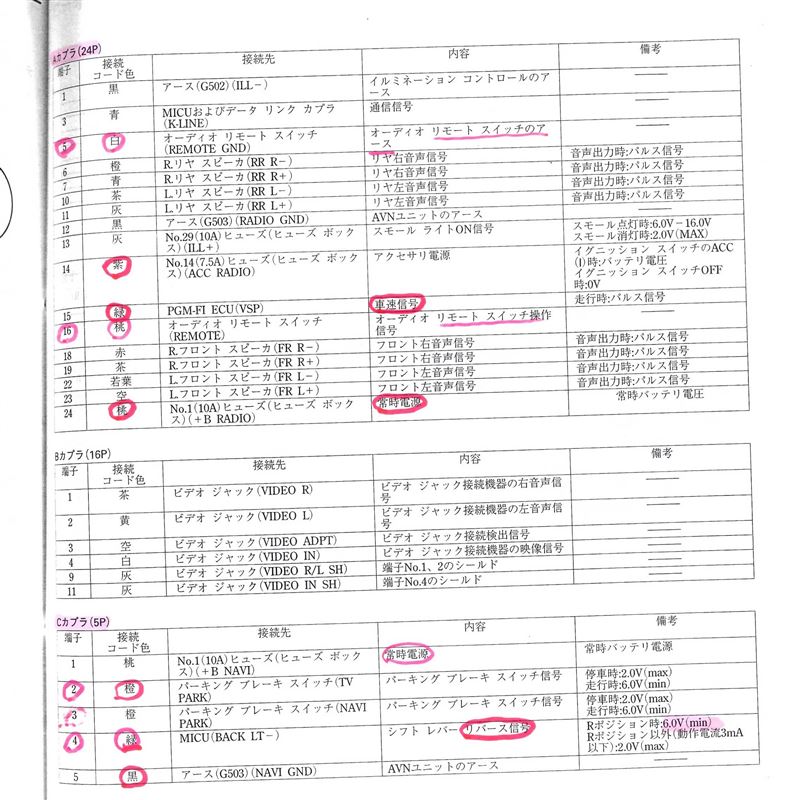 Aカプラ(24P)
端子 接続コード色 接続先 内容 備考
1 黒 アース(G502)(ILL−) イルミネーション コントロールのアース ――
3 青 MICUおよびデータ リンク カプラ(K-LINE) 通信信号 ――
5 白 オーディオ リモート スイッチ(REMOTE GND) オーディオ リモート スイッチのアース ――
6 橙 R.リヤ スピーカ(RR R−) リヤ右音声信号 音声出力時:パルス信号
7 青 R.リヤ スピーカ(RR R+) リヤ右音声信号 音声出力時:パルス信号
10 茶 L.リヤ スピーカ(RR L−) リヤ左音声信号 音声出力時:パルス信号
11 灰 L.リヤ スピーカ(RR L+) リヤ左音声信号 音声出力時:パルス信号
12 黒 アース(G503)(RADIO GND) AVNユニットのアース ――
13 灰 No.29(10A)ヒューズ(ヒューズ ボックス)(ILL+) スモール ライトON信号 スモール点灯時:6.0V−16.0V スモール消灯時:2.0V(MAX)
14 紫 No.14(7.5A)ヒューズ(ヒューズ ボックス)(ACC RADIO) アクセサリ電源 イグニッション スイッチのACC(I)時:バッテリ電圧 イグニッション スイッチOFF時:0V
15 緑 PGM-FI ECU(VSP) 車速信号 走行時:パルス信号
16 桃 オーディオ リモート スイッチ(REMOTE) オーディオ リモート スイッチ操作信号 ――
18 赤 R.フロント スピーカ(FR R−) フロント右音声信号 音声出力時:パルス信号
19 茶 R.フロント スピーカ(FR R+) フロント右音声信号 音声出力時:パルス信号
22 若葉 L.フロント スピーカ(FR L−) フロント左音声信号 音声出力時:パルス信号
23 空 L.フロント スピーカ(FR L+) フロント左音声信号 音声出力時:パルス信号
24 桃 No.1(10A)ヒューズ(ヒューズ ボックス)(+B RADIO) 常時電源 常時バッテリ電圧
Bカプラ(16P)
端子 接続コード色 接続先 内容 備考
1 茶 ビデオ ジャック(VIDEO R) ビデオ ジャック接続機器の右音声信号 ――
2 黄 ビデオ ジャック(VIDEO L) ビデオ ジャック接続機器の左音声信号 ――
3 空 ビデオ ジャック(VIDEO ADPT) ビデオ ジャック接続検出信号 ――
4 白 ビデオ ジャック(VIDEO IN) ビデオ ジャック接続機器の映像信号 ――
9 灰 ビデオ ジャック(VIDEO R/L SH) 端子No.1、2のシールド ――
11 灰 ビデオ ジャック(VIDEO IN SH) 端子No.4のシールド ――
Cカプラ(5P)
端子 接続コード色 接続先 内容 備考
1 桃 No.1(10A)ヒューズ(ヒューズ ボックス)(+B NAVI) 常時電源 常時バッテリ電源
2 橙 パーキング ブレーキ スイッチ(TV PARK) パーキング ブレーキ スイッチ信号 停車時:2.0V(max) 走行時:6.0V(min)
3 橙 パーキング ブレーキ スイッチ(NAVI PARK) パーキング ブレーキ スイッチ信号 停車時:2.0V(max) 走行時:6.0V(min)
4 緑 MICU(BACK LT−) シフト レバー リバース信号 Rポジション時:6.0V(min) Rポジション以外(動作電流3mA以下):2.0V(max)
5 黒 アース(G503)(NAVI GND) AVNユニットのアース ――